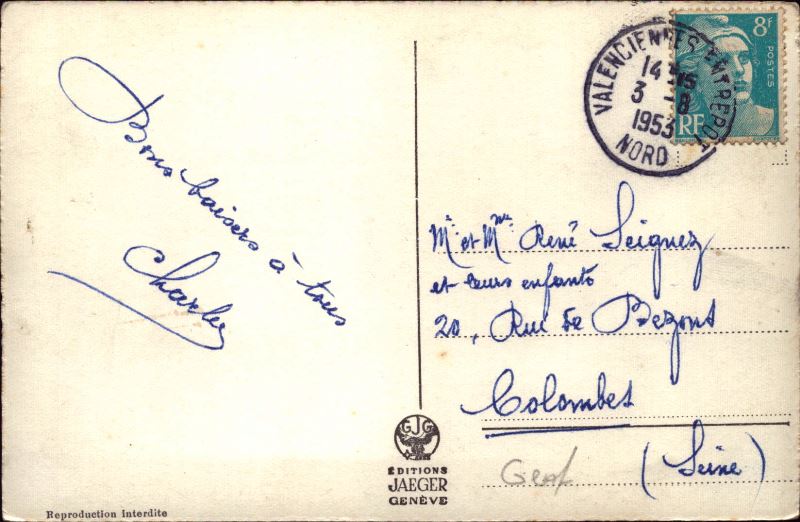 Bons baisers à tous
Charles
Reproduction interdite
GJG
ÉDITIONS
JAEGER
GENÈVE
VALENCIENNES ENTREPOT
14 15
3 - 8
1953
NORD
8f
POSTES
RF
Mr et Mme René Seignez
et leurs enfants
20, Rue de Bezons
Colombes
(Seine)